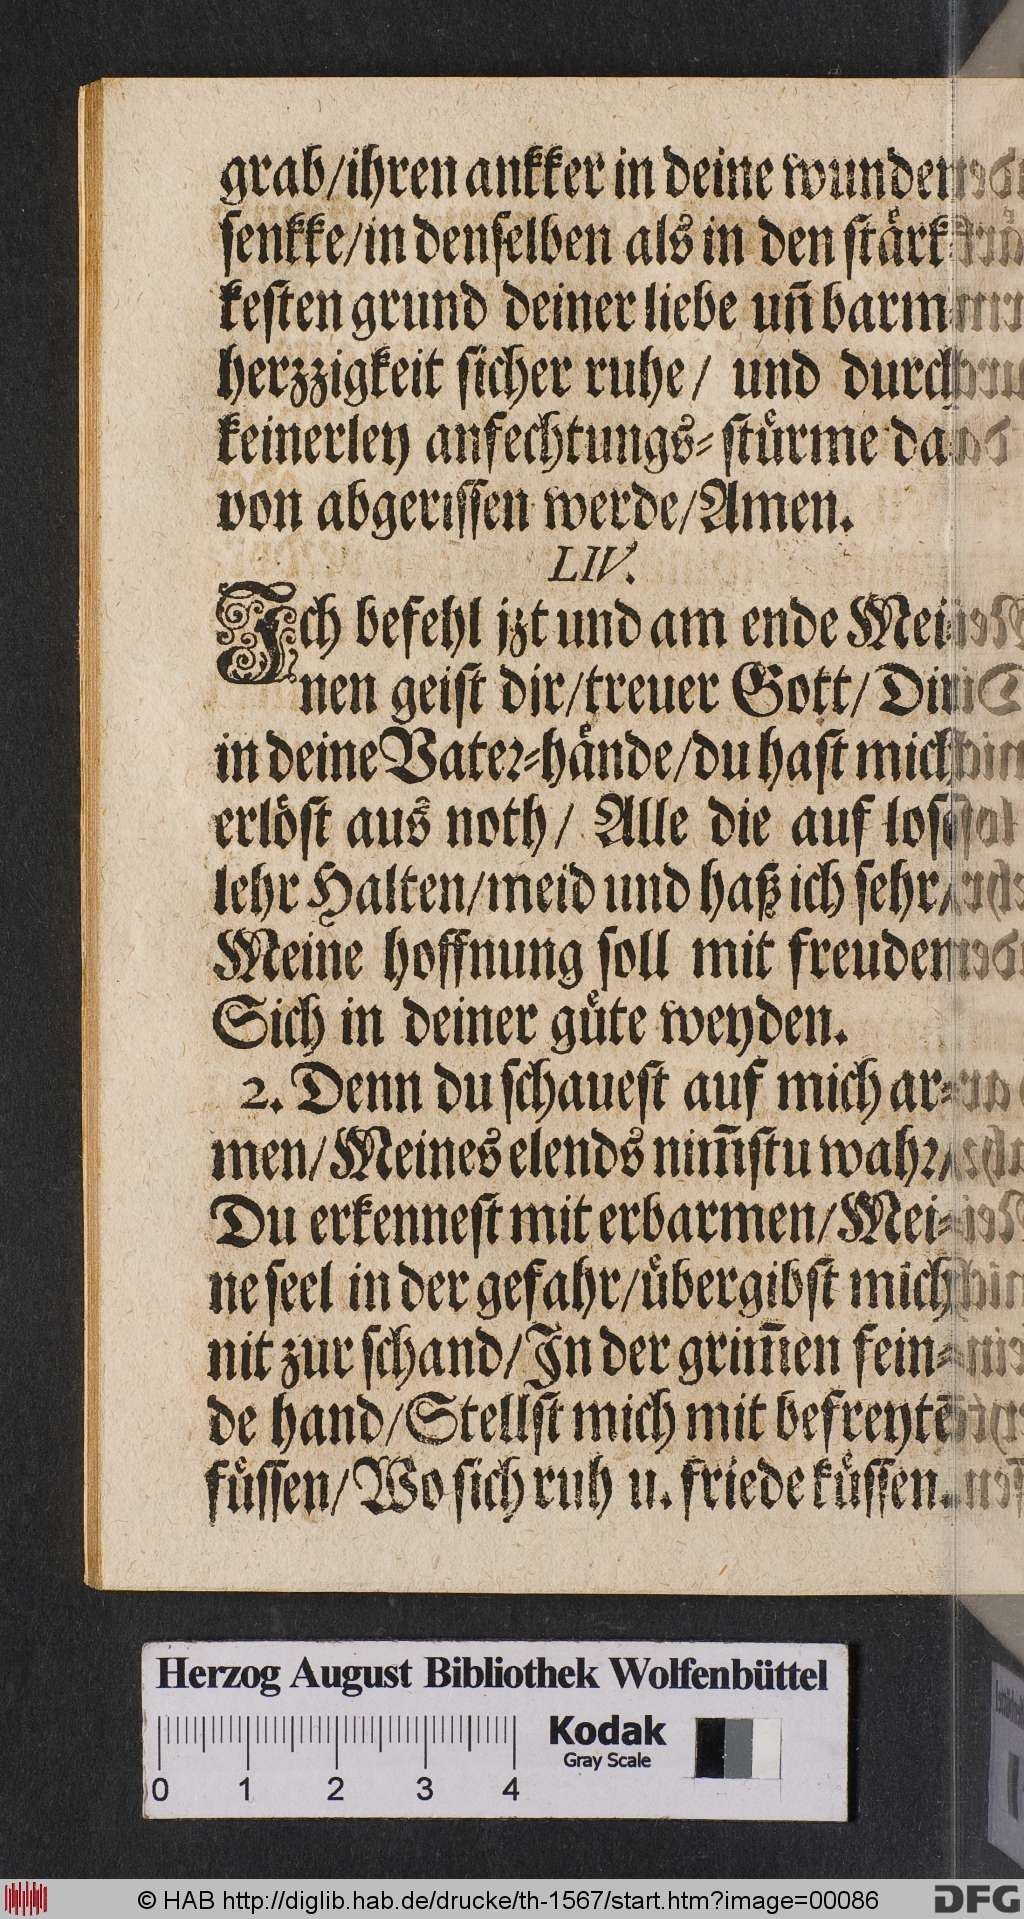 grab/ihren ankker in deine wunden
senkke/in denselben als in den stärk-
kesten grund deiner liebe un̄ barm-
herzzigkeit sicher ruhe/ und durch
keinerley anfechtungs-stürme da
von abgerissen werde/Amen.
LIV.
Ich befehl jzt und am ende Mei-
nen geist dir/treuer Gott/ Dir
in deine Vater-hände/du hast mich
erlöst aus noth/ Alle die auf lose
lehr Halten/meid und haß ich sehr/
Meine hoffnung soll mit freuden
Sich in deiner güte weyden.
2. Denn du schauest auf mich ar-
men/Meines elends nim̄stu wahr/
Du erkennest mit erbarmen/Mei-
ne seel in der gefahr/übergibst mich
nit zur schand/In der grim̄en fein-
de hand/Stellst mich mit befreytē
füssen/Wo sich ruh u. friede küssen.
Herzog August Bibliothek Wolfenbüttel
Kodak
Gray Scale
0 1 2 3 4
© HAB http://diglib.hab.de/drucke/th-1567/start.htm?image=00086
DFG